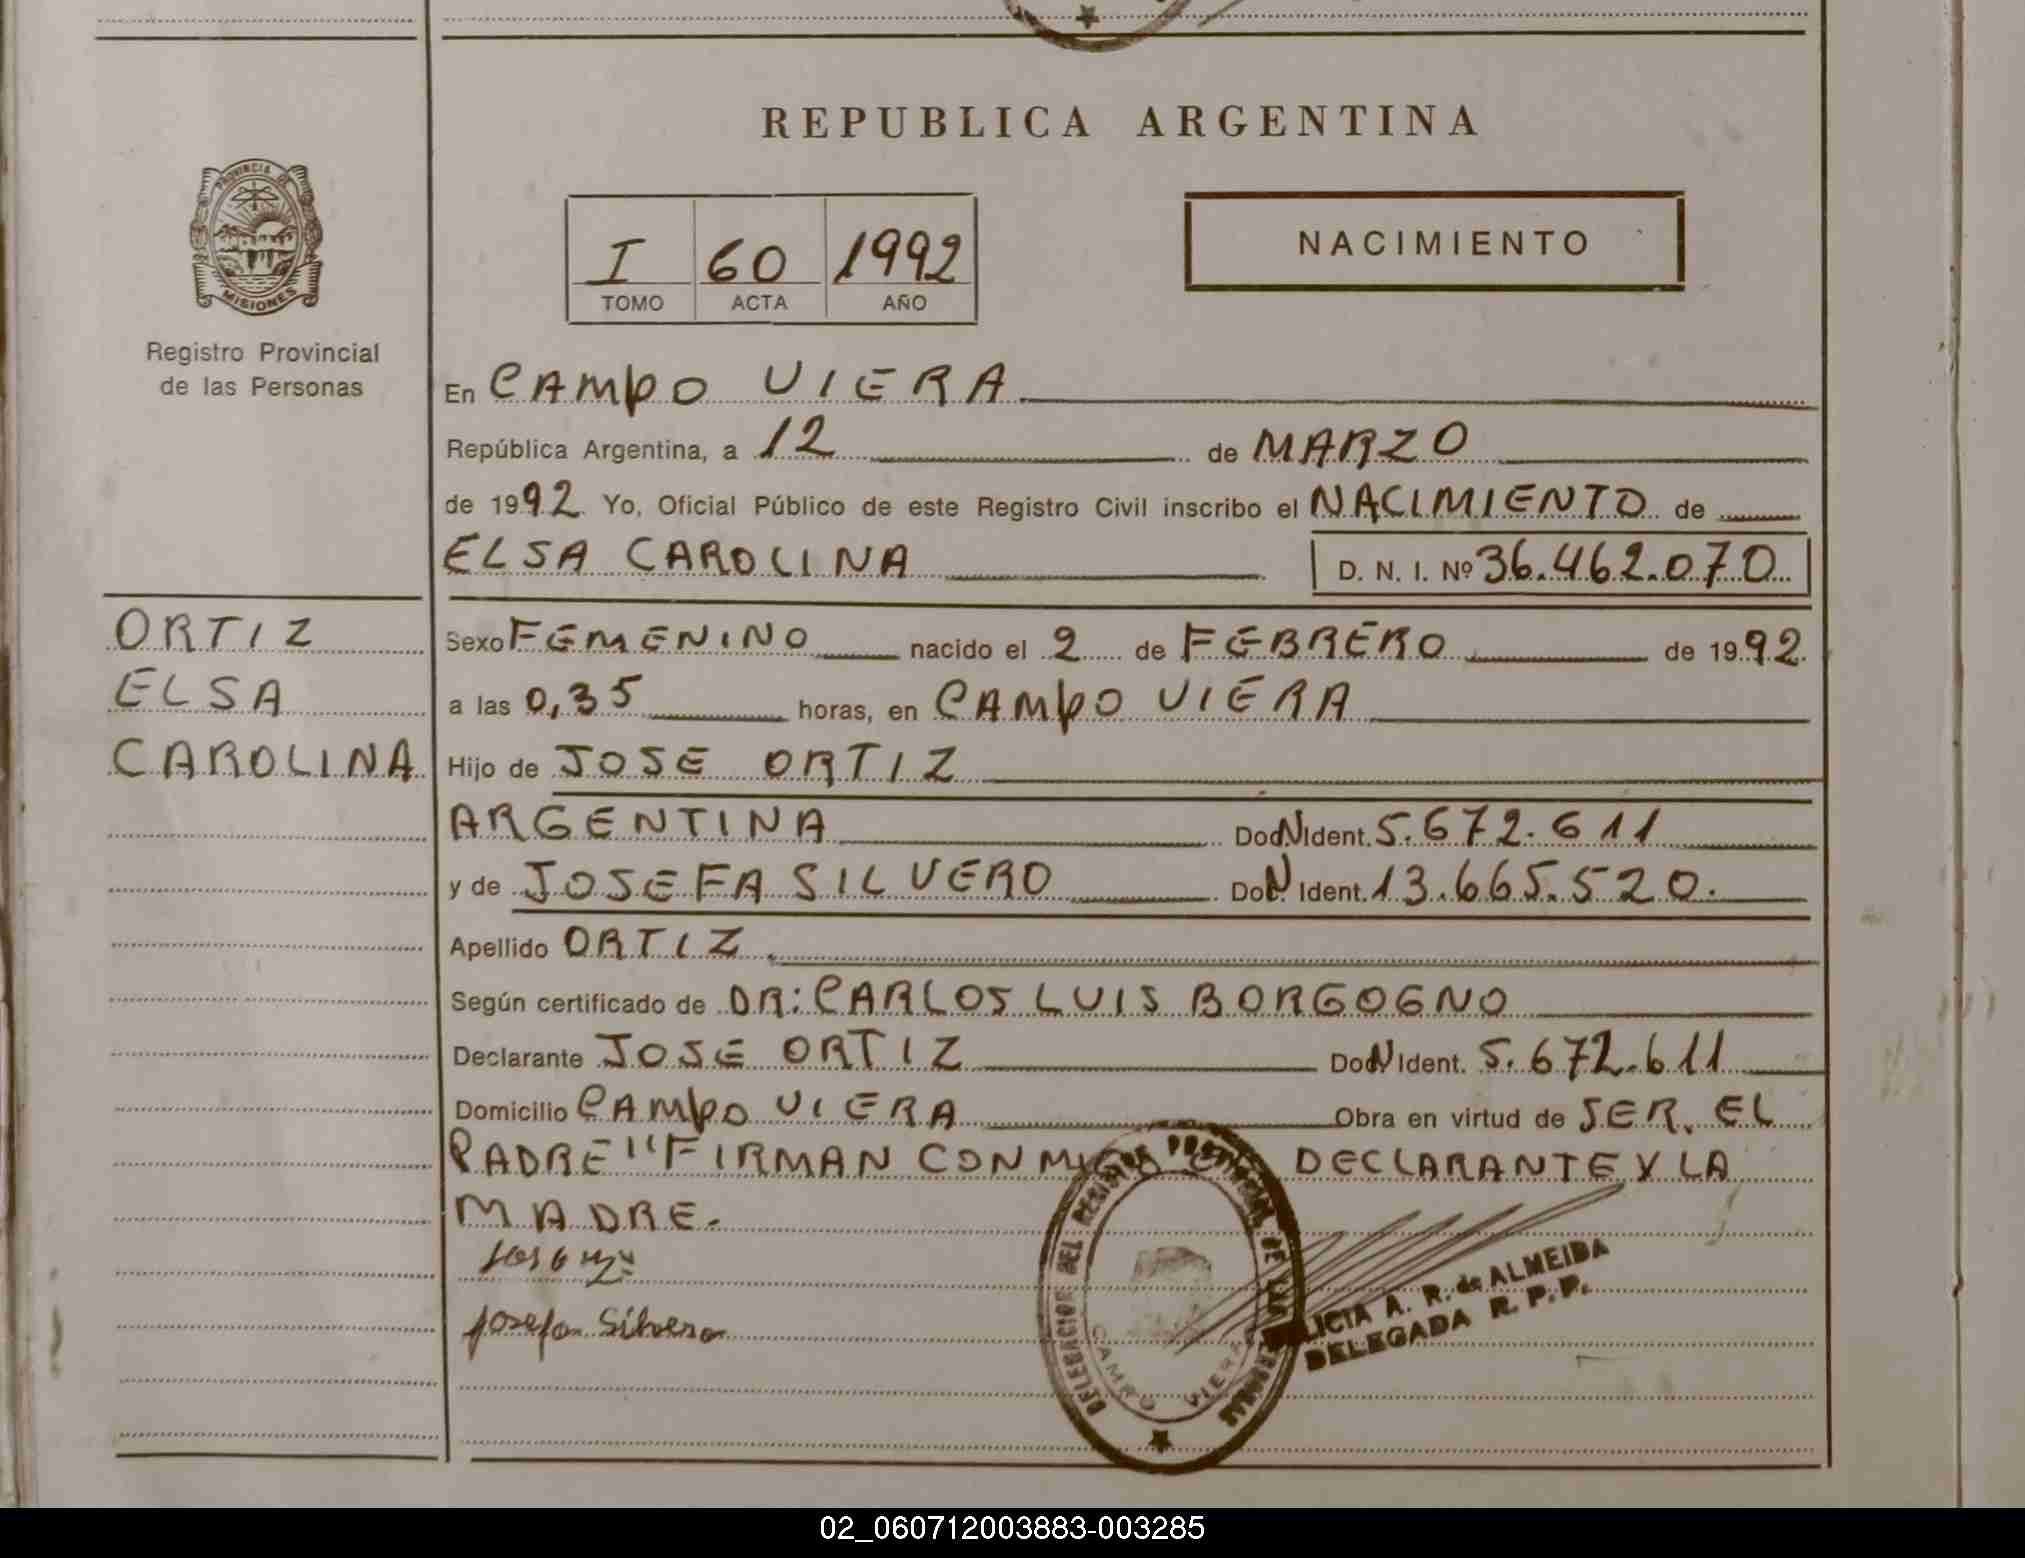 REPUBLICA ARGENTINA
PROVINCIA DE
MISIONES
Registro Provincial
de las Personas
I 60 1992
TOMO ACTA AÑO
NACIMIENTO
En CAMPO VIERA
República Argentina, a 12 de MARZO
de 1992. Yo, Oficial Público de este Registro Civil inscribo el NACIMIENTO de
ELSA CAROLINA D. N. I. Nº 36.462.070
ORTIZ
ELSA
CAROLINA
Sexo FEMENINO nacido el 2 de FEBRERO de 1992.
a las 0,35 horas, en CAMPO VIERA
Hijo de JOSE ORTIZ
ARGENTINA Doc. N Ident. 5.672.611
y de JOSEFA SILVERO Doc. N Ident. 13.665.520.
Apellido ORTIZ
Según certificado de DR: CARLOS LUIS BORGOGNO
Declarante JOSE ORTIZ Doc. N Ident. 5.672.611
Domicilio CAMPO VIERA Obra en virtud de SER. EL
PADRE "FIRMAN CONMIGO EL DECLARANTE Y LA
MADRE.
Josefa Silvero
DELEGACION DEL REGISTRO PROVINCIAL DE LAS PERSONAS
CAMPO VIERA
LICIA A. R. de ALMEIDA
DELEGADA R. P. P.
02_060712003883-003285